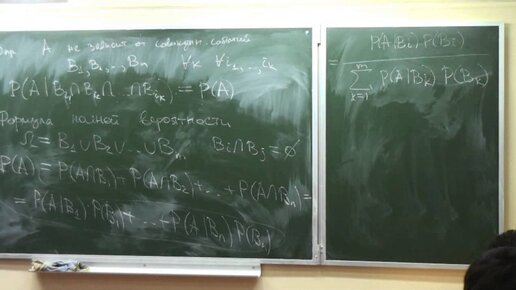 Опр. A не зависит от совокупн. событий
B₁, B₂, .., Bₙ ∀k ∀i₁, .., iₖ
P(A | B_{i₁} ∩ B_{i₂} ∩ .. ∩ B_{iₖ}) = P(A)
Формула полной вероятности
Ω = B₁ ∪ B₂ ∪ .. ∪ Bₙ Bᵢ ∩ Bⱼ = ∅
P(A) = P(A∩B₁) + P(A∩B₂) + .. + P(A∩Bₙ) =
= P(A|B₁) P(B₁) + .. + P(A|Bₙ) P(Bₙ)
= P(A|Bᵢ) P(Bᵢ)
∑_{k=1}^{n} P(A|Bₖ) P(Bₖ)